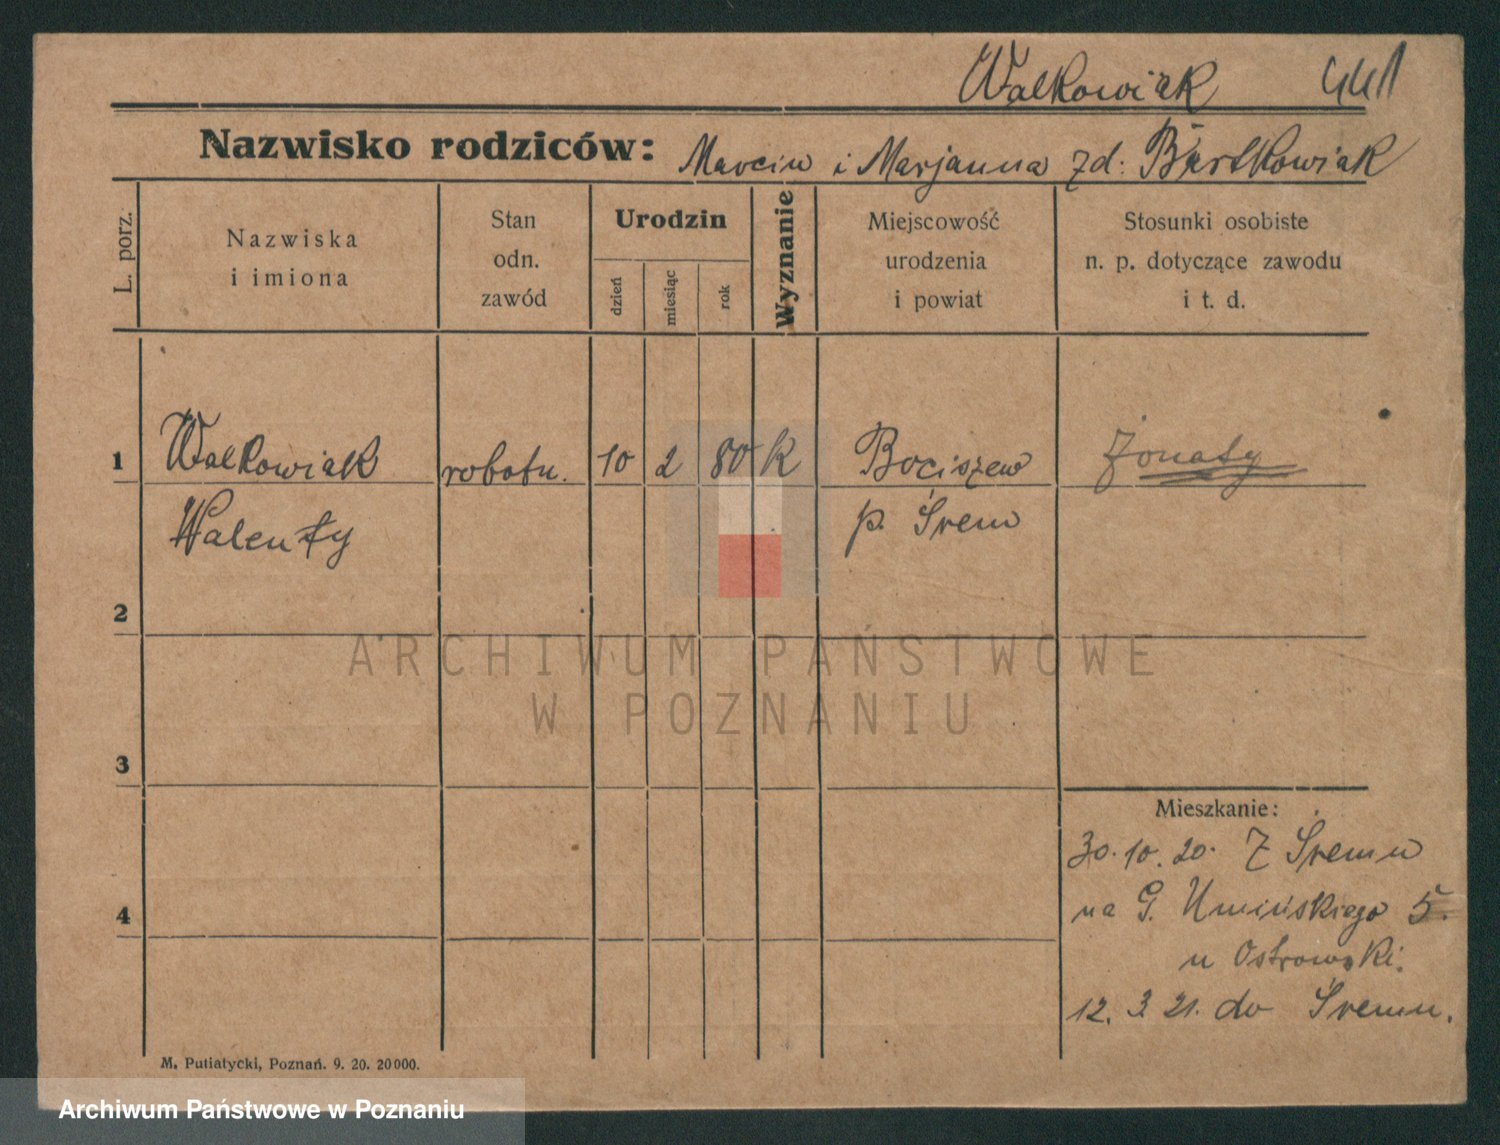 Walkowiak 441
Nazwisko rodziców: Marcin i Marjanna zd: Bartkowiak
L. porz.
Nazwiska
i imiona
Stan
odn.
zawód
Urodzin
dzień
miesiąc
rok
Wyznanie
Miejscowość
urodzenia
i powiat
Stosunki osobiste
n. p. dotyczące zawodu
i t. d.
1 Walkowiak robotn. 10 2 80 K Bociszew Żonaty
Walenty p. Śrem
2
3
4
Mieszkanie:
30.10.20. Z Śremu
na G. Umińskiego 5.
u Ostrowski.
12. 3. 21. do Śremu.
M. Putiatycki, Poznań. 9. 20. 20000.
ARCHIWUM PAŃSTWOWE
W POZNANIU
Archiwum Państwowe w Poznaniu